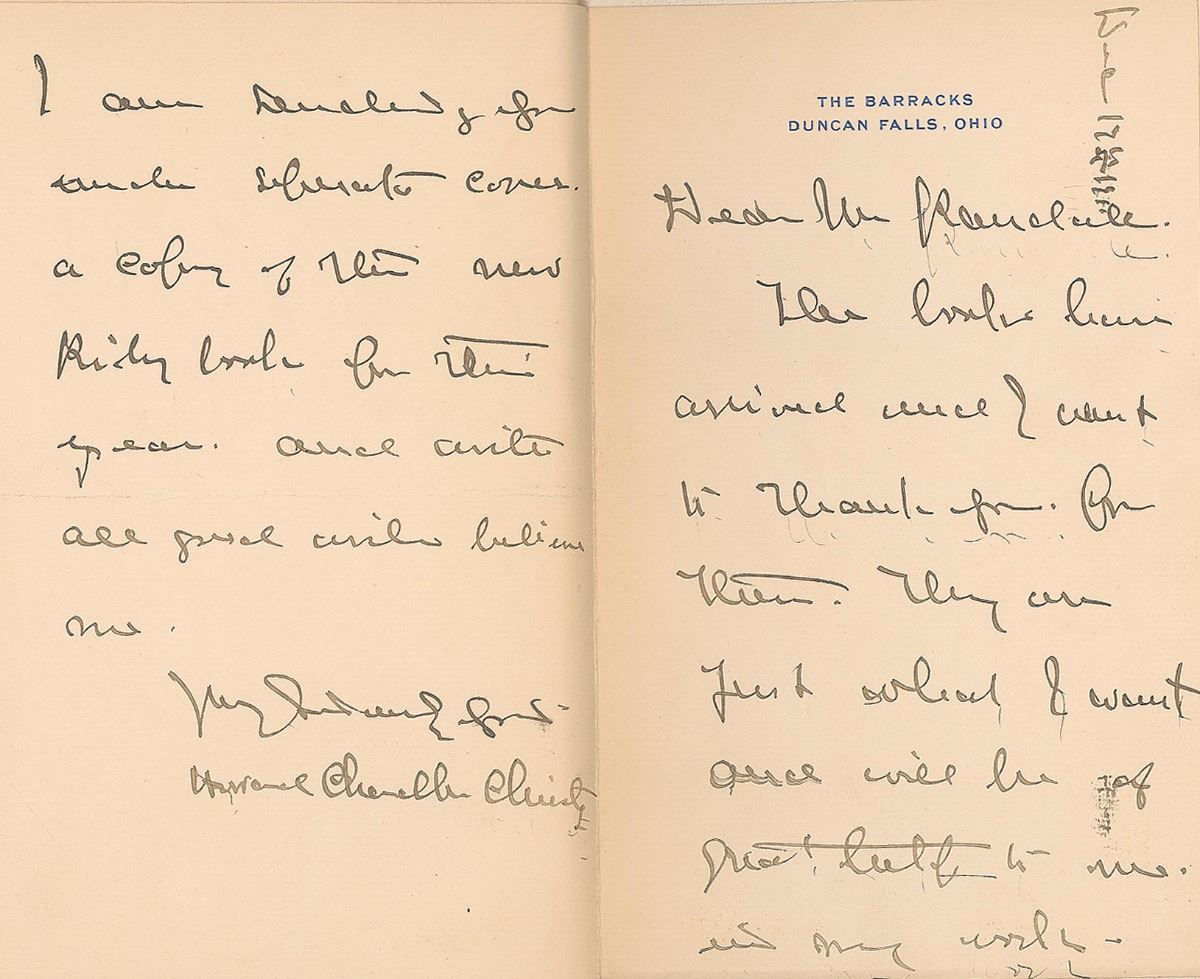 THE BARRACKS
DUNCAN FALLS, OHIO
Dear Mr Randall.
The books have
arrived and I want
to thank you. for
them. They are
just what I want
and will be of
great help to me.
in my work -
I am sending you
under seperate cover.
a copy of the new
Riley book for this
year. and with
all good wishes believe
me.
Very Sincerely yours-
Howard Chandler Christy